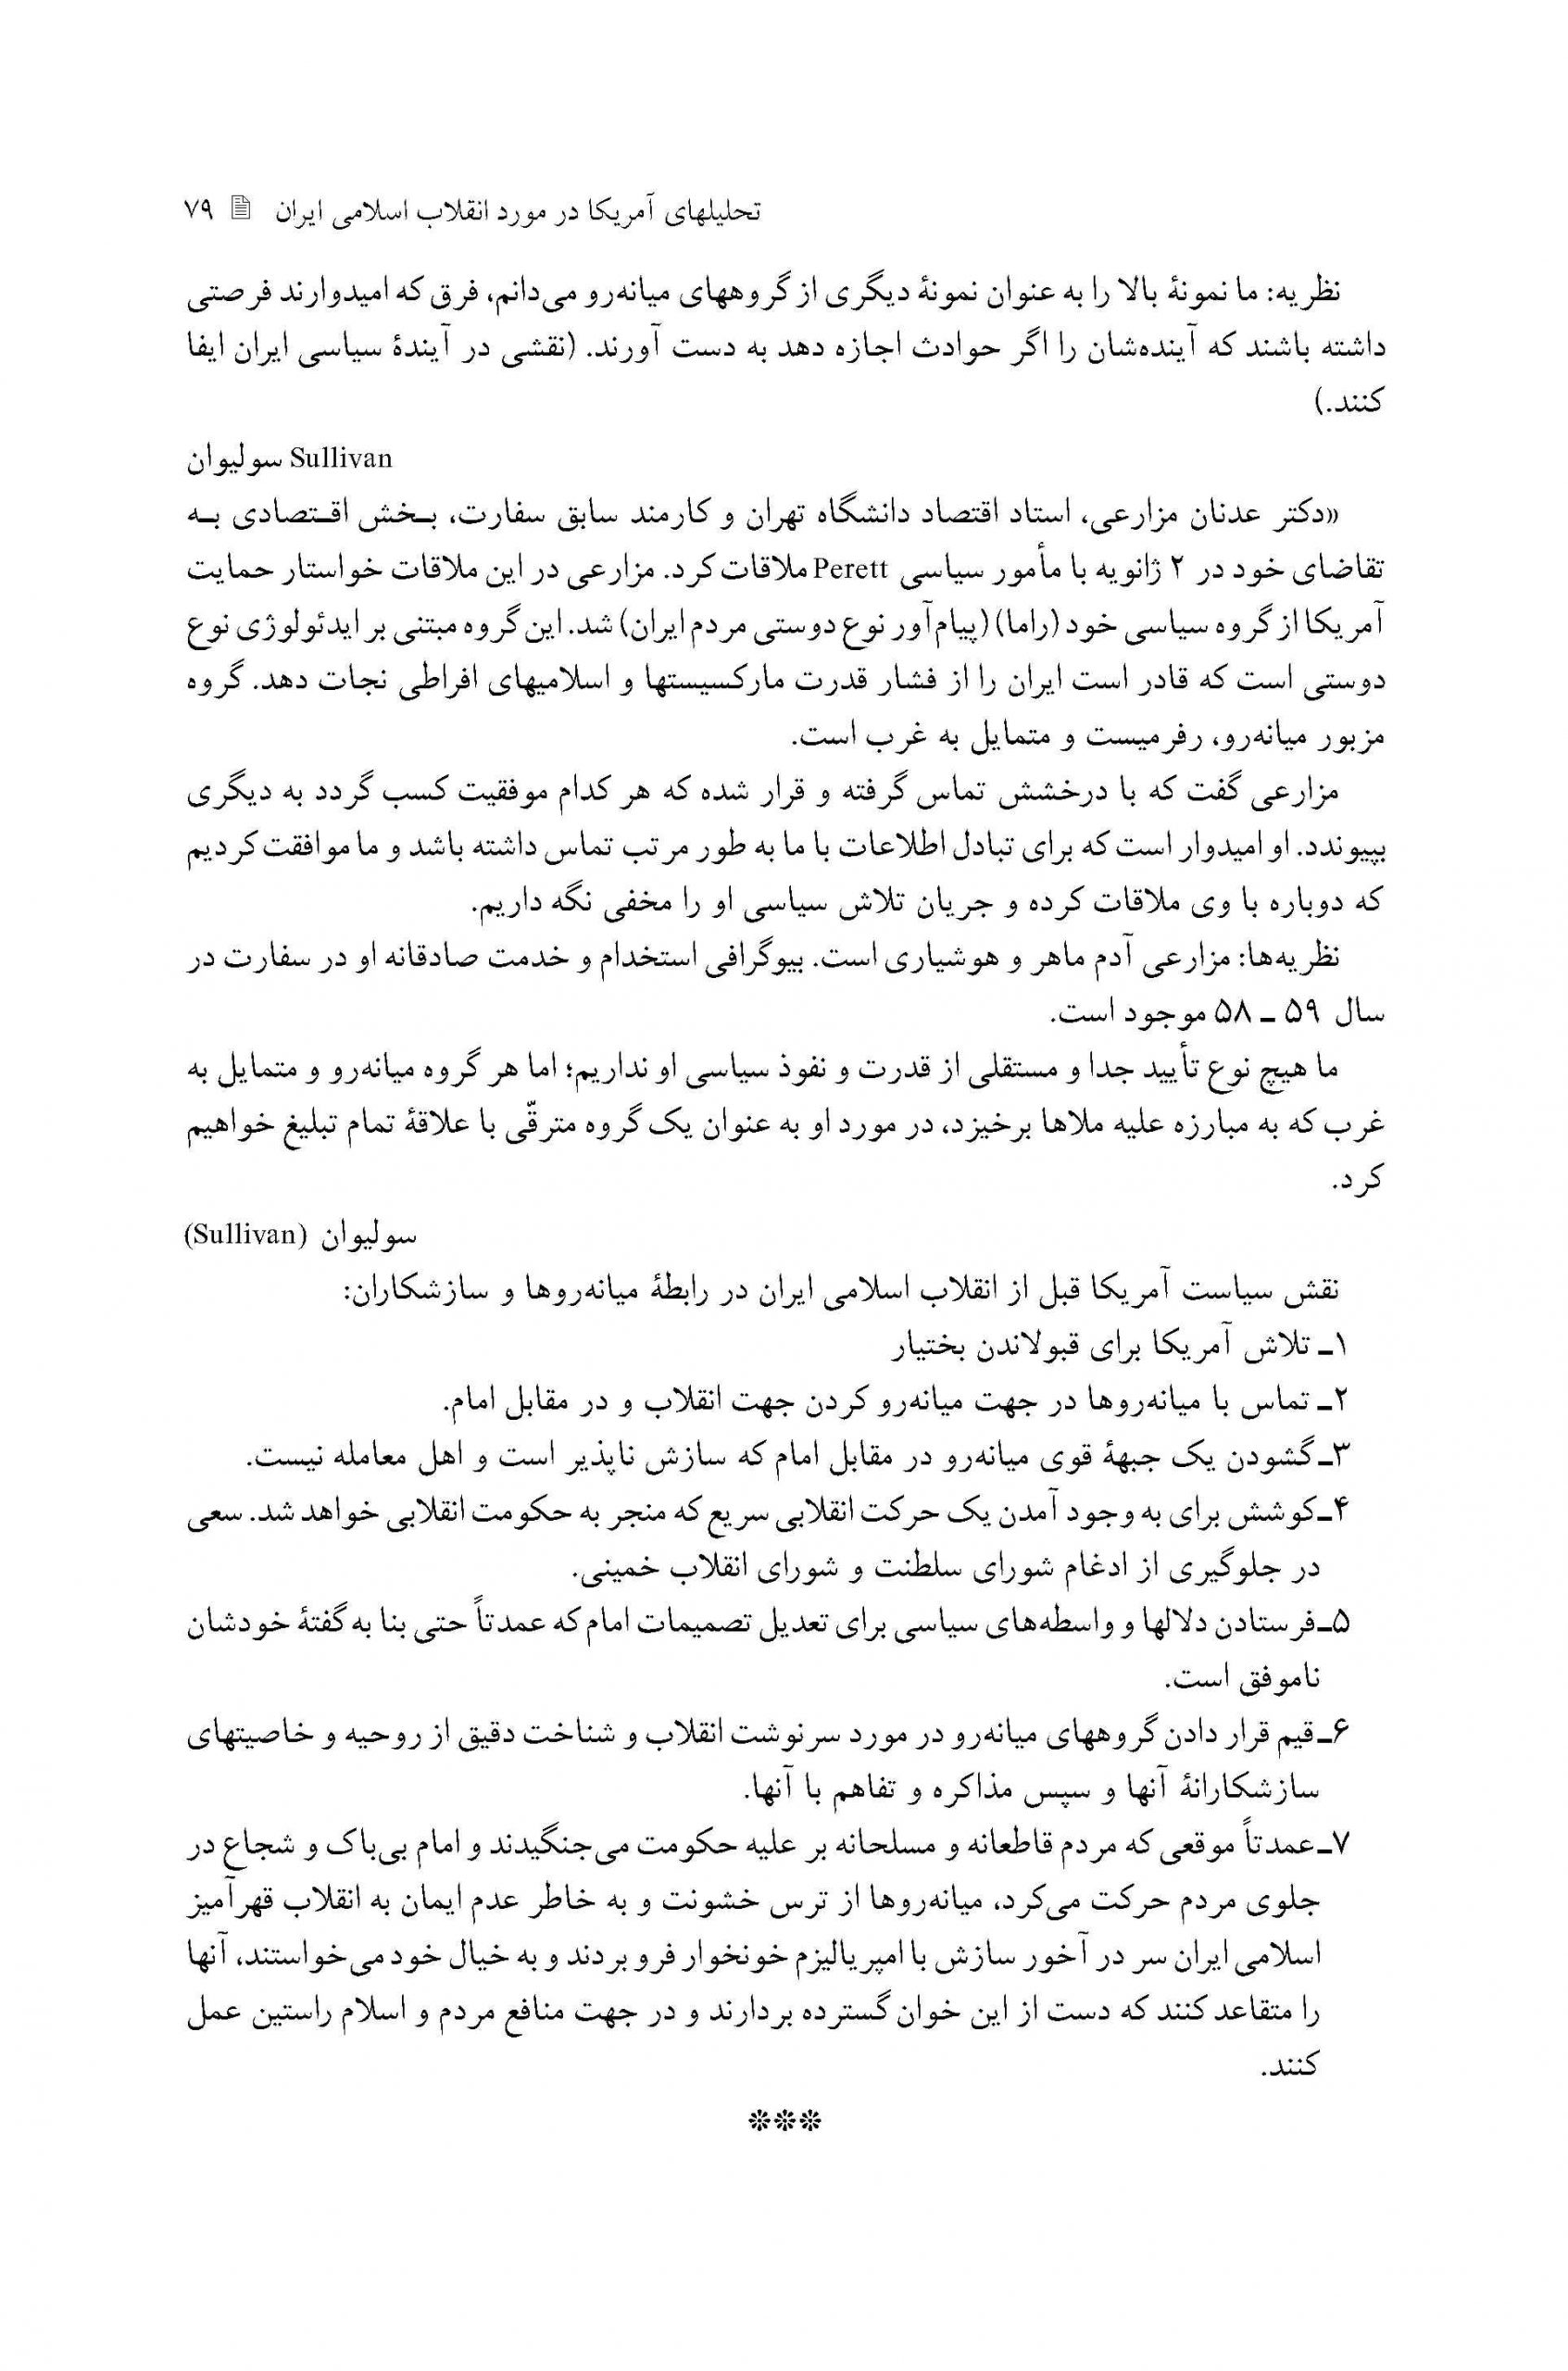 تحلیلهای آمریکا در مورد انقلاب اسلامی ایران ۷۹
نظریه: ما نمونۀ بالا را به عنوان نمونۀ دیگری از گروههای میانه‌رو می‌دانم، فرق که امیدوارند فرصتی
داشته باشند که آینده‌شان را اگر حوادث اجازه دهد به دست آورند. (نقشی در آیندۀ سیاسی ایران ایفا
کنند.)
سولیوان Sullivan
«دکتر عدنان مزارعی، استاد اقتصاد دانشگاه تهران و کارمند سابق سفارت، بـخش اقـتصادی بـه
تقاضای خود در ۲ ژانویه با مأمور سیاسی Perett ملاقات کرد. مزارعی در این ملاقات خواستار حمایت
آمریکا از گروه سیاسی خود (راما) (پیام‌آور نوع دوستی مردم ایران) شد. این گروه مبتنی بر ایدئولوژی نوع
دوستی است که قادر است ایران را از فشار قدرت مارکسیستها و اسلامیهای افراطی نجات دهد. گروه
مزبور میانه‌رو، رفرمیست و متمایل به غرب است.
مزارعی گفت که با درخشش تماس گرفته و قرار شده که هر کدام موفقیت کسب گردد به دیگری
بپیوندد. او امیدوار است که برای تبادل اطلاعات با ما به طور مرتب تماس داشته باشد و ما موافقت کردیم
که دوباره با وی ملاقات کرده و جریان تلاش سیاسی او را مخفی نگه داریم.
نظریه‌ها: مزارعی آدم ماهر و هوشیاری است. بیوگرافی استخدام و خدمت صادقانه او در سفارت در
سال ۵۹ ـ ۵۸ موجود است.
ما هیچ نوع تأیید جدا و مستقلی از قدرت و نفوذ سیاسی او نداریم؛ اما هر گروه میانه‌رو و متمایل به
غرب که به مبارزه علیه ملاها برخیزد، در مورد او به عنوان یک گروه مترقّی با علاقۀ تمام تبلیغ خواهیم
کرد.
سولیوان (Sullivan)
نقش سیاست آمریکا قبل از انقلاب اسلامی ایران در رابطۀ میانه‌روها و سازشکاران:
۱ـ تلاش آمریکا برای قبولاندن بختیار
۲ـ تماس با میانه‌روها در جهت میانه‌رو کردن جهت انقلاب و در مقابل امام.
۳ـ گشودن یک جبهۀ قوی میانه‌رو در مقابل امام که سازش ناپذیر است و اهل معامله نیست.
۴ـ کوشش برای به وجود آمدن یک حرکت انقلابی سریع که منجر به حکومت انقلابی خواهد شد. سعی
در جلوگیری از ادغام شورای سلطنت و شورای انقلاب خمینی.
۵ـ فرستادن دلالها و واسطه‌های سیاسی برای تعدیل تصمیمات امام که عمدتاً حتی بنا به گفتۀ خودشان
ناموفق است.
۶ـ قیم قرار دادن گروههای میانه‌رو در مورد سرنوشت انقلاب و شناخت دقیق از روحیه و خاصیتهای
سازشکارانۀ آنها و سپس مذاکره و تفاهم با آنها.
۷ـ عمدتاً موقعی که مردم قاطعانه و مسلحانه بر علیه حکومت می‌جنگیدند و امام بی‌باک و شجاع در
جلوی مردم حرکت می‌کرد، میانه‌روها از ترس خشونت و به خاطر عدم ایمان به انقلاب قهرآمیز
اسلامی ایران سر در آخور سازش با امپریالیزم خونخوار فرو بردند و به خیال خود می‌خواستند، آنها
را متقاعد کنند که دست از این خوان گسترده بردارند و در جهت منافع مردم و اسلام راستین عمل
کنند.
***